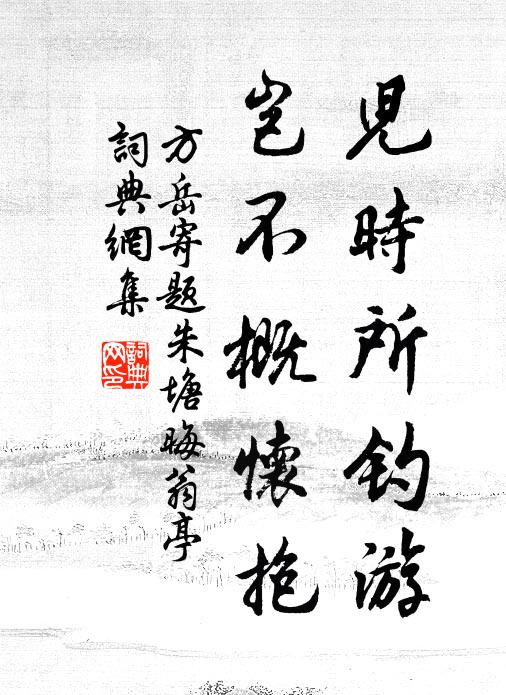 兒時所釣游
豈不概懷抱
方岳寄題朱塘晦翁亭
詞典網集
詞典網印